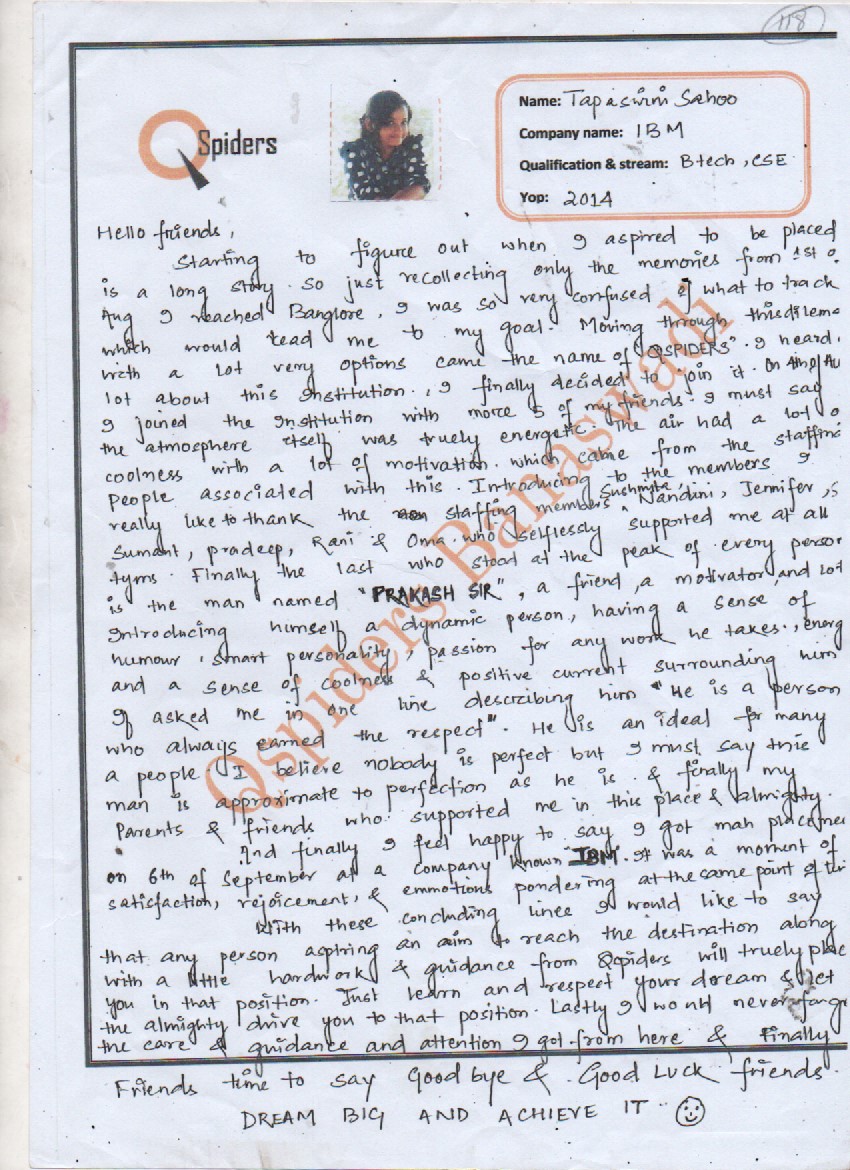 118
Spiders
Name: Tapaswini Sahoo
Company name: IBM
Qualification & stream: Btech, CSE
Yop: 2014
Hello friends,
Starting to figure out when I aspired to be placed
is a long story. So just recollecting only the memories from 1st o
Aug I reached Banglore, I was so very confused of what to track
which would lead me to my goal. Moving through this dilema
with a lot very options came the name of "QSPIDERS". I heard
lot about this institution., I finally decided to join it. On of Au
I joined the institution with more 5 of my friends. I must say
the atmosphere itself was truely energetic. The air had a lot o
coolness with a lot of motivation. which came from the staffing
people associated with this. Introducing to the members I
really like to thank the staffing members Sushmita, Nandini, Jennifer, S
Sumant, pradeep, Rani & Oma who selflessly supported me at all
tyms. Finally the last who stood at the peak of every person
is the man named "PRAKASH SIR", a friend, a motivator, and lot
Introducing himself a dynamic person, having a sense of
humour, smart personality, passion for any work he takes., energ
and a sense of coolness & positive current surrounding him
If asked me in one line describing him "He is a person
who always earned the respect". He is an ideal for many
a people. I believe nobody is perfect but I must say this
man is approximate to perfection as he is. & finally my
Parents & friends who supported me in this place & almighty.
And finally I feel happy to say I got mah placemen
on 6th of September at a company known "IBM". It was a moment of
satisfaction, rejoicement, & emmotions pondering at the same point of
With these concluding lines I would like to say
that any person aspiring an aim to reach the destination along
with a little hardwork & guidance from Qspiders will truely plac
you in that position. Just learn and respect your dream & let
the almighty drive you to that position. Lastly I would never forge
the care & guidance and attention I got from here & Finally
Friends time to say Good bye & Good Luck friends.
DREAM BIG AND ACHIEVE IT.
Qspiders Banaswadi